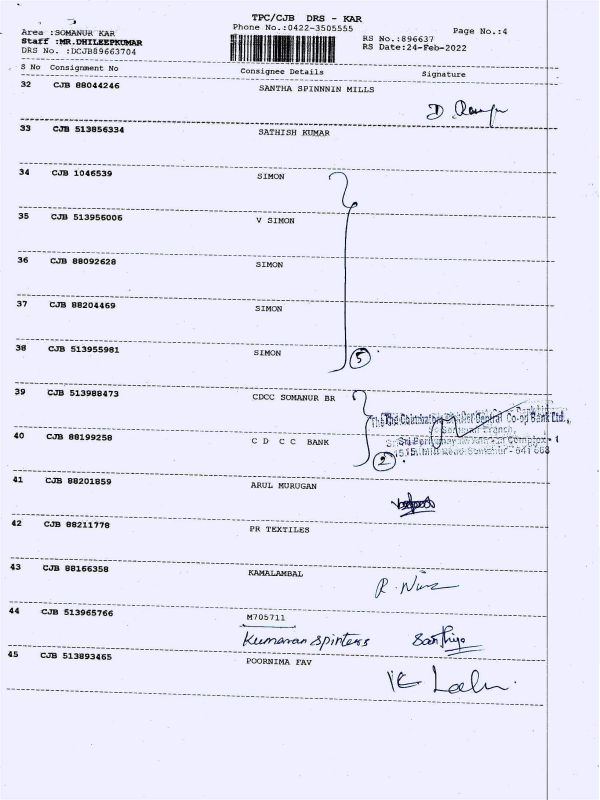 TPC/CJB DRS - KAR
Area :SOMANUR KAR
Phone No.:0422-3505555
Page No.:4
Staff :MR.DHILEEPKUMAR
RS No.:896637
DRS No. :DCJB89663704
RS Date:24-Feb-2022
S No Consignment No Consignee Details Signature
32 CJB 88044246 SANTHA SPINNNIN MILLS
33 CJB 513856334 SATHISH KUMAR
34 CJB 1046539 SIMON
35 CJB 513956006 V SIMON
36 CJB 88092628 SIMON
37 CJB 88204469 SIMON
38 CJB 513955981 SIMON
5
39 CJB 513988473 CDCC SOMANUR BR
The Coimbatore District Central Co-op Bank Ltd.,
40 CJB 88199258 C D C C BANK
2
41 CJB 88201859 ARUL MURUGAN
42 CJB 88211778 PR TEXTILES
43 CJB 88166358 KAMALAMBAL
44 CJB 513965766 M705711
Kumaran spinters
45 CJB 513893465 POORNIMA FAV